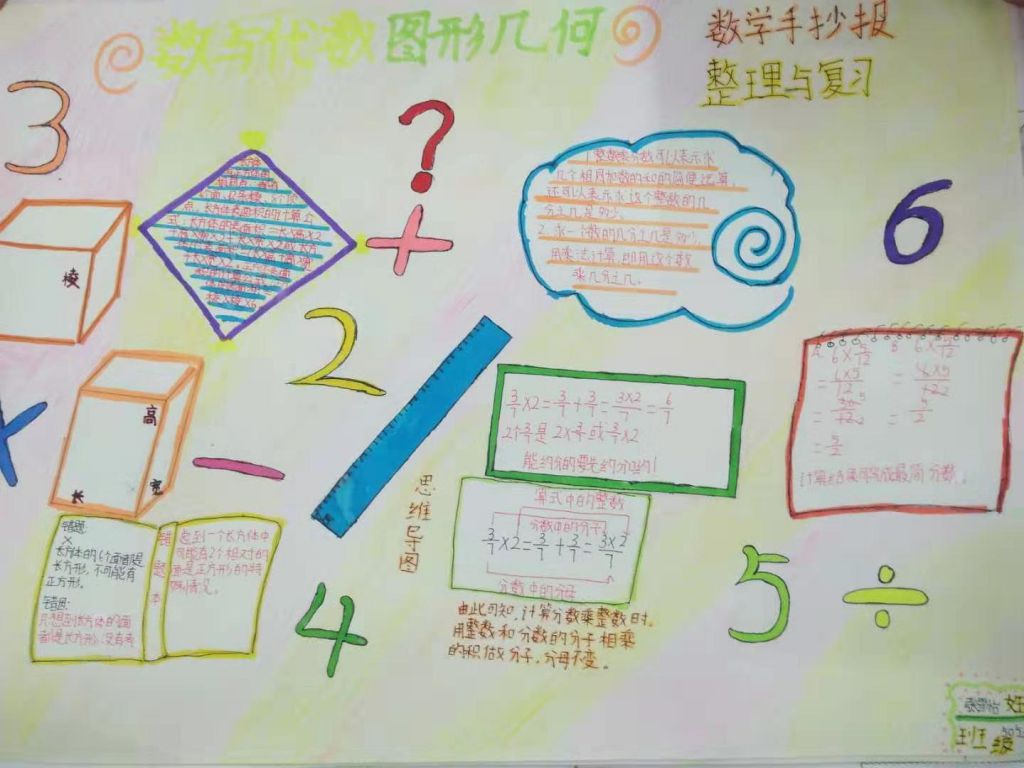 数与代数图形几何
数学手抄报
整理与复习
3
?
+
6
2
-
4
5
÷
棱
高
长
宽
点,长方体表面积的计算公
式:长方体的表面积=长×高×2
1.整数乘分数可以表示求
几个相同加数的和的简便运算,
还可以表示求这个整数的几
分之几是多少。
2.求一个数的几分之几是多少,
用乘法计算,即用这个数
乘几分之几。
3/7×2=3/7+3/7=3×2/7=6/7
2个3/7是2×3/7或3/7×2
能约分的要先约分哟!
思维导图
算式中的整数
分数中的分子
3/7×2=3/7+3/7=3×2/7
分数中的分母
由此可知,计算分数乘整数时,
用整数和分数的分子相乘
的积做分子,分母不变。
A
6×5/12
=6×5/12
=5/2
B
6×5/12
=6×5/12
=5/2
错题:
×
长方体的6个面都是
长方形,不可能有
正方形。
错因:
只想到长方体的面
都是长方形,没有考
错题本
虑到一个长方体中
可能有2个相对的
面是正方形的特
殊情况。
班级